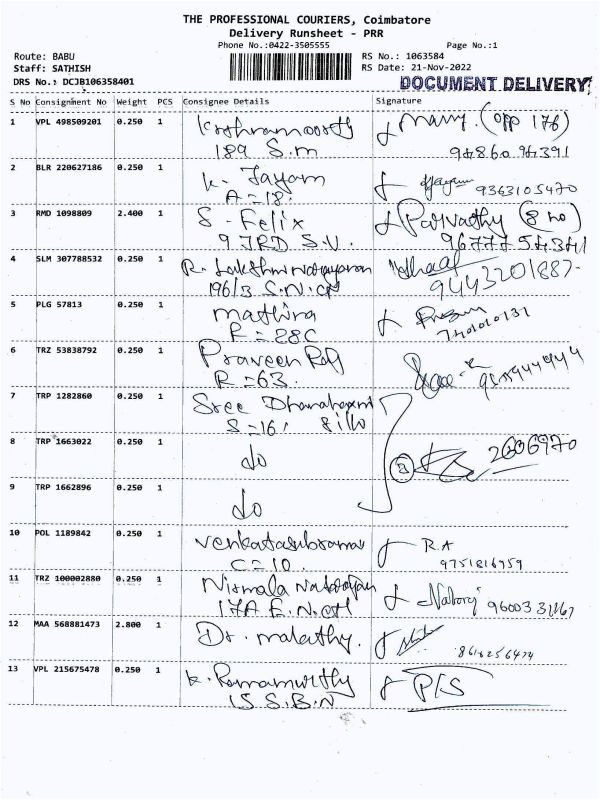 THE PROFESSIONAL COURIERS, Coimbatore
Delivery Runsheet - PRR
Phone No.:0422-3505555
Page No.:1
Route: BABU
RS No.: 1063584
Staff: SATHISH
RS Date: 21-Nov-2022
DRS No.: DCJB106358401
DOCUMENT DELIVERY
S No Consignment No Weight PCS Consignee Details Signature
1 VPL 498509201 0.250 1 Krishnamoorthy (opp 176)
189 S.m
2 BLR 220627186 0.250 1 K. Jayam
A = 18. 9363105470
3 RMD 1098809 2.400 1 S - Felix Parvathy (8 no)
9 JRD. S.V. 9677754341
4 SLM 307788532 0.250 1 R. Lakshmi narayanan
196/3 S.N. 9443201887-
5 PLG 57813 0.250 1 mathina
R = 28C 7401010131
6 TRZ 53838792 0.250 1 Praveen
R = 63.
7 TRP 1282860 0.250 1 Sree Dhanalaxmi
S = 16
8 TRP 1663022 0.250 1 do (3) 2606970
9 TRP 1662896 0.250 1 do
10 POL 1189842 0.250 1 Venkatasubraman R.A
C = 10. 9751816959
11 TRZ 100002880 0.250 1 Nirmala Natarajan Nataraj
17A E.N.
12 MAA 568881473 2.800 1 Dr. malathy.
13 VPL 215675478 0.250 1 K. Ramamurthy P/S
15 S.B.N